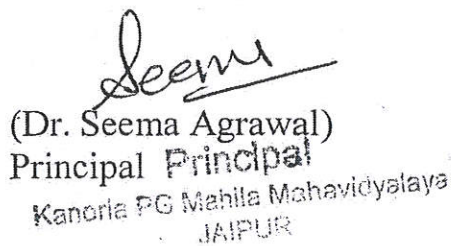 Seema
(Dr. Seema Agrawal)
Principal Principal
Kanoria PG Mahila Mahavidyalaya
JAIPUR